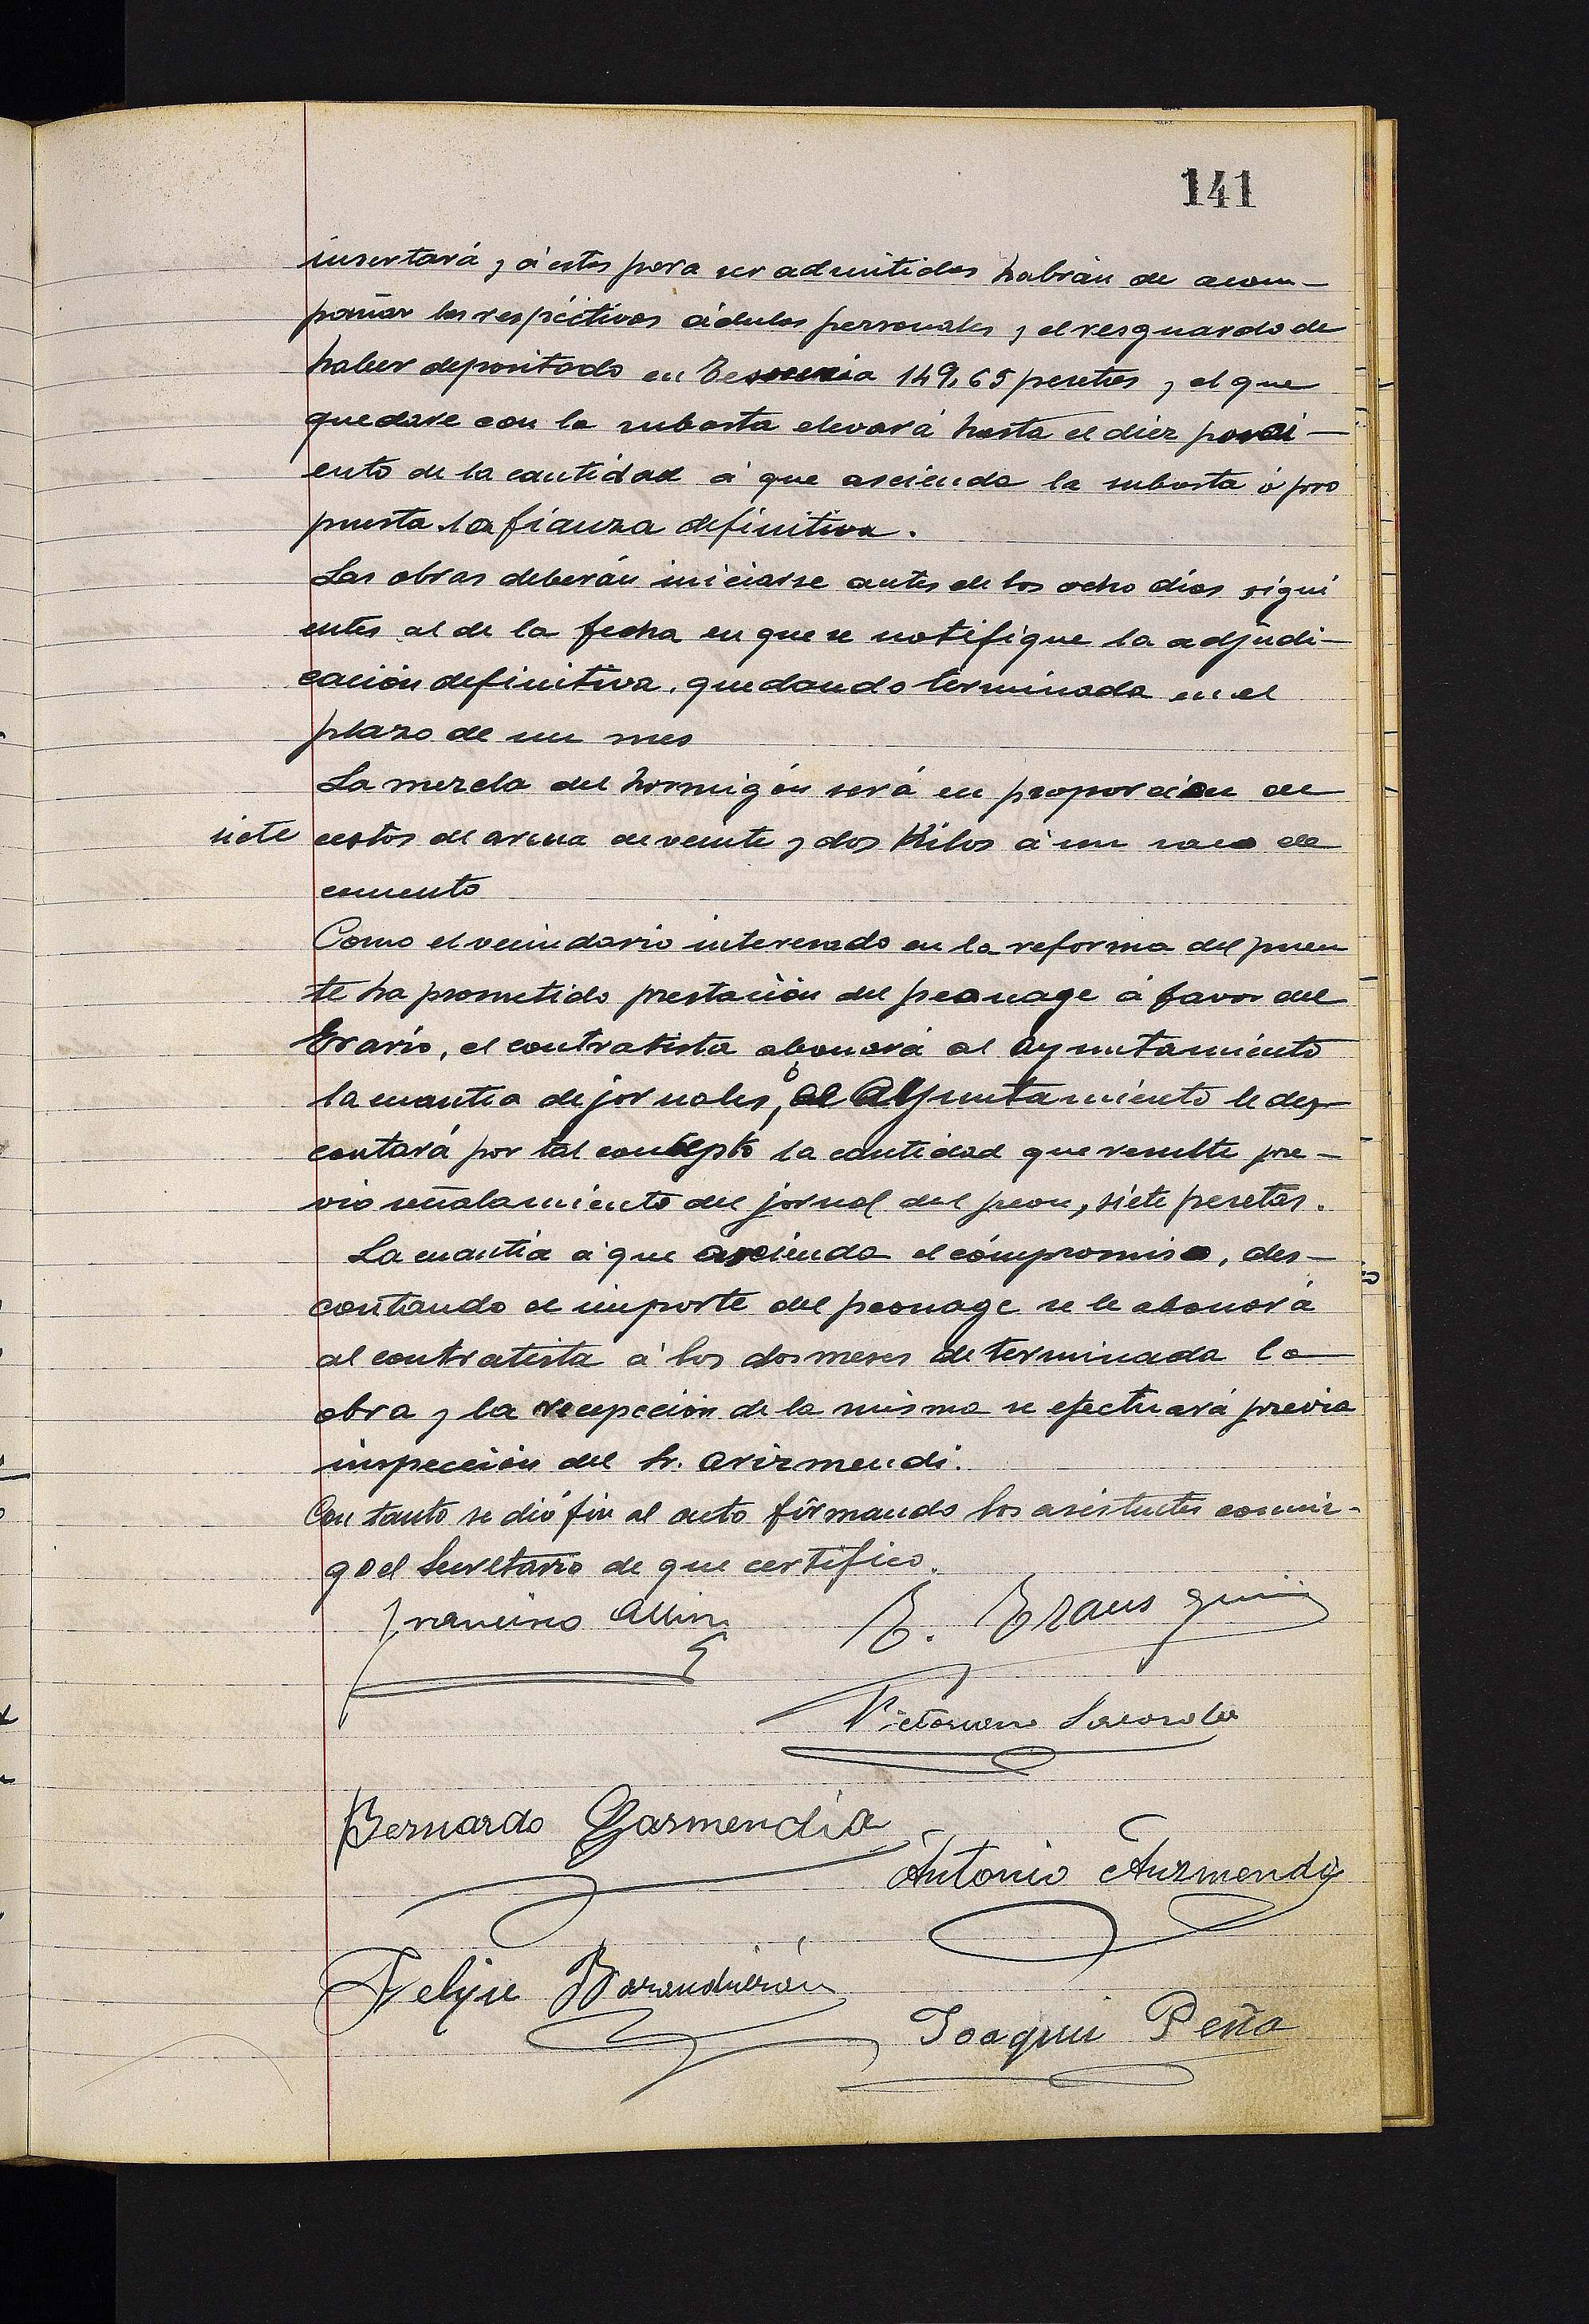 141
insertará, á estas para ser admitidas habrán de acom-
pañar las respéctivas cédulas personales y el resguardo de
haber depositado en Tesoreria 149,65 pesetas y el que
quedare con la subasta elevará hasta el diez porci-
ento de la cantidad á que ascienda la subasta ó pro
puesta la fianza definitiva.
Las obras deberán iniciarse antes de los ocho días sigui
entes al de la fecha en que se notifique la adjudi-
cación definitiva, quedando terminada en el
plazo de un mes
La mezcla del hormigón será en proporción de
siete cestos de arena de veinte y dos Kilos á un saco de
cemento
Como el vecindario interesado en la reforma del puen
te ha prometido prestación del peonage á favor del
Erario, el contratista abonará al Ayuntamiento
la cuantia de jornales, ó el Ayuntamiento le des
contará por tal concepto la cantidad que resulte pre-
vio señalamiento del jornal del peon, siete pesetas.
La cuantia á que ascienda el compromiso, des-
contando el importe del peonage se le abonará
al contratista á los dos meses de terminada la
obra y la recepción de la misma se efectuará previa
inspección del Sr. Arizmendi.
Con tanto se dió fin al acto firmando los asistentes conmi-
go el Secretario de que certifico.
Francisco Albin
E. Erausquin
Victoriano
Bernardo Garmendia
Antonio Auzmendi
Felipe Barandiarán
Joaquin Peña